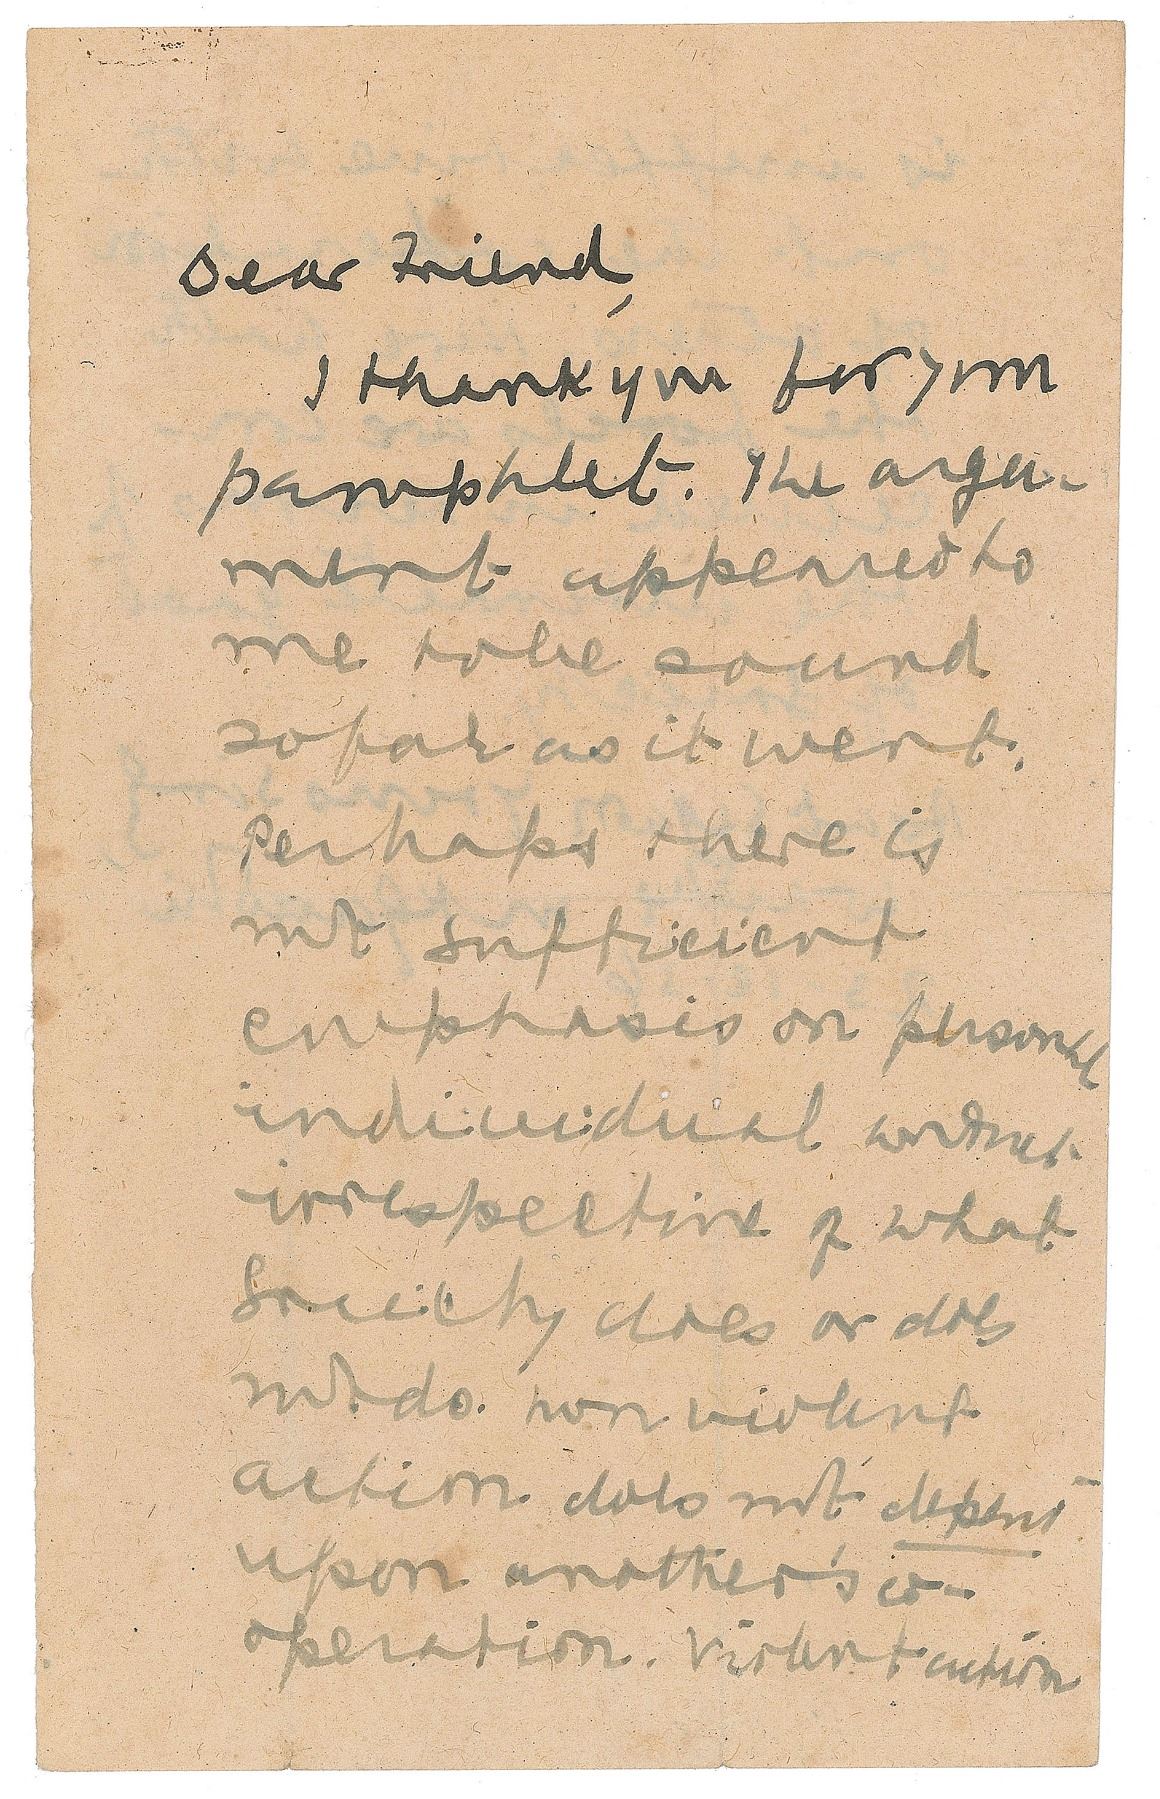 Dear Friend,
I thank you for your
pamphlet. The argu-
ment appeared to
me to be sound
so far as it went.
Perhaps there is
not sufficient
emphasis on personal
individual
irrespective of what
Society does or does
not do. Non violent
action does not depend
upon another's co-
operation. Violent action